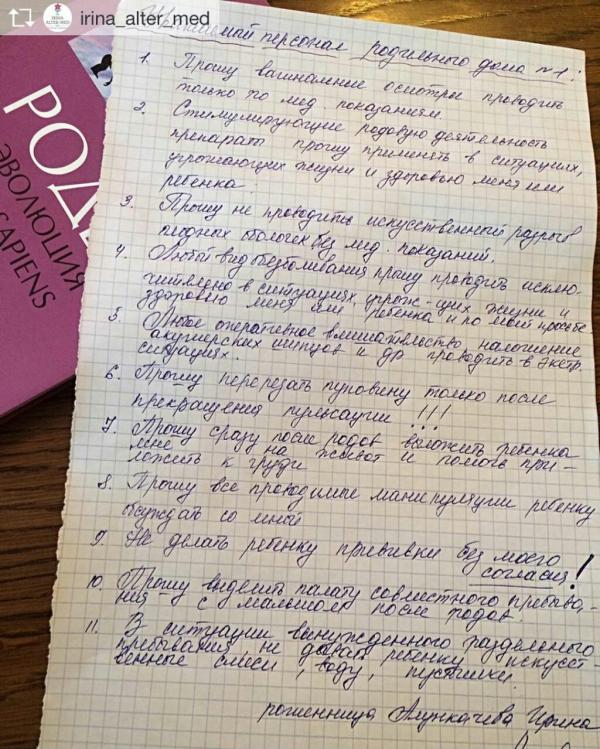 irina_alter_med
РОД
ЭВОЛЮЦИЯ
SAPIENS
персонал родильного дома №1:
1. Прошу вагинальные осмотры проводить
только по мед. показаниям.
2. Стимулирующие родовую деятельность
препараты прошу применять в ситуациях,
угрожающих жизни и здоровью меня или
ребенка.
3. Прошу не проводить искусственный разрыв
плодных оболочек без мед. показаний.
4. Любой вид обезболивания прошу проводить исклю-
чительно в ситуациях, угрож-щих жизни и
здоровью меня или ребенка и по моей просьбе.
5. Любое оперативное вмешательство наложение
акушерских щипцов и др проводить в экстр.
ситуациях.
6. Прошу перерезать пуповину только после
прекращения пульсации!!!
7. Прошу сразу после родов выложить ребенка
мне на живот и помочь при-
ложить к груди
8. Прошу все проводимые манипуляции ребенку
со мной
9. Не делать ребенку прививки без моего
согласия!
10. Прошу выделить палату совместного пребыва-
ния с малышом после родов.
11. В ситуации вынужденного раздельного
пребывания не давать ребенку искусст-
венные смеси, воду, пустышки.
роженица Ирина